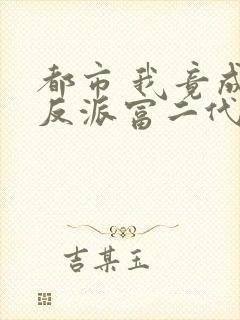 都市我竟成
反派富二代
吉某玉